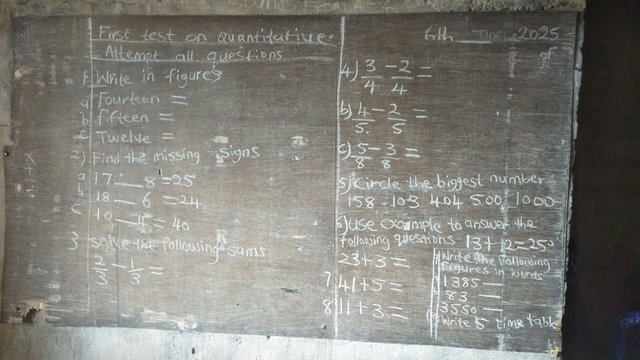 First test on Quantitative.
6th June 2025
Attempt all questions
1. Write in figures
a Fourteen =
b fifteen =
c Twelve =
2) Find the missing signs
a 17 __ 8 = 25
b 18 __ 6 = 24
c 10 __ 4 = 40
3 Solve the following sums
2/3 - 1/3 =
4) 3/4 - 2/4 =
b) 4/5 - 2/5 =
c) 5/8 - 3/8 =
5) Circle the biggest number
158 - 103 404 500 1000
6) Use example to answer the
following questions 13 + 12 = 25
23 + 3 =
7 41 + 5 =
8 11 + 3 =
Write the following
figures in words
1385 —
83 —
3550 —
Write 5 time table